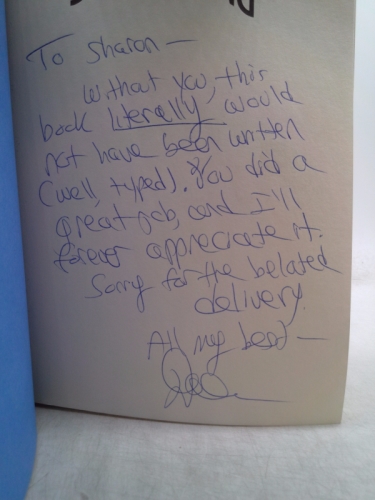 To Sharon —
Without you, this
book literally would
not have been written
(well, typed). You did a
great job, and I'll
forever appreciate it.
Sorry for the belated
delivery.
All my best —